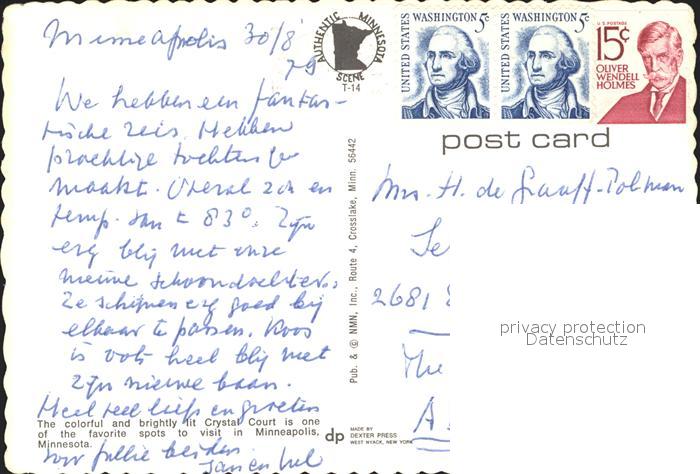 Minneapolis 30/8
79
We hebben een fantas-
tische reis. Hebben
prachtige tochten ge
maakt. Overal zon en
temp. van ± 83°. Zijn
erg blij met onze
nieuwe schoondochter.
Ze schijnen erg goed bij
elkaar te passen. Koos
is ook heel blij met
zijn nieuwe baan.
Heel veel liefs en groeten
The colorful and brightly lit Crystal Court is one
of the favorite spots to visit in Minneapolis,
Minnesota.
voor jullie beiden
Jan en
AUTHENTIC MINNESOTA
SCENE
T-14
Pub. & © NMN, Inc., Route 4, Crosslake, Minn. 56442
dp MADE BY
DEXTER PRESS
WEST NYACK, NEW YORK
UNITED STATES
WASHINGTON 5¢
UNITED STATES
WASHINGTON 5¢
U.S. POSTAGE
15¢
OLIVER
WENDELL
HOLMES
post card
Mrs. H. de Graaff-Polman
2681
The
privacy protection
Datenschutz